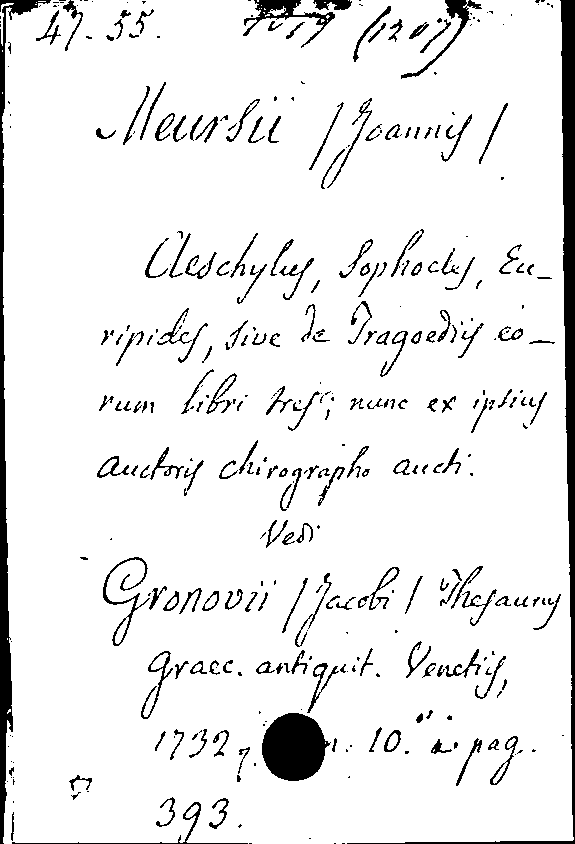 47. 55. 1019 (1207)
Meursii /Joannis/
Aeschylus, Sophocles, Eu_
ripides, sive de Tragoediis eo_
rum libri tres; nunc ex ipsius
auctoris chirographo aucti.
Vedi
Gronovii /Jacobi/ Thesaurus
graec. antiquit. Venetiis,
1732, 10. a pag.
393.